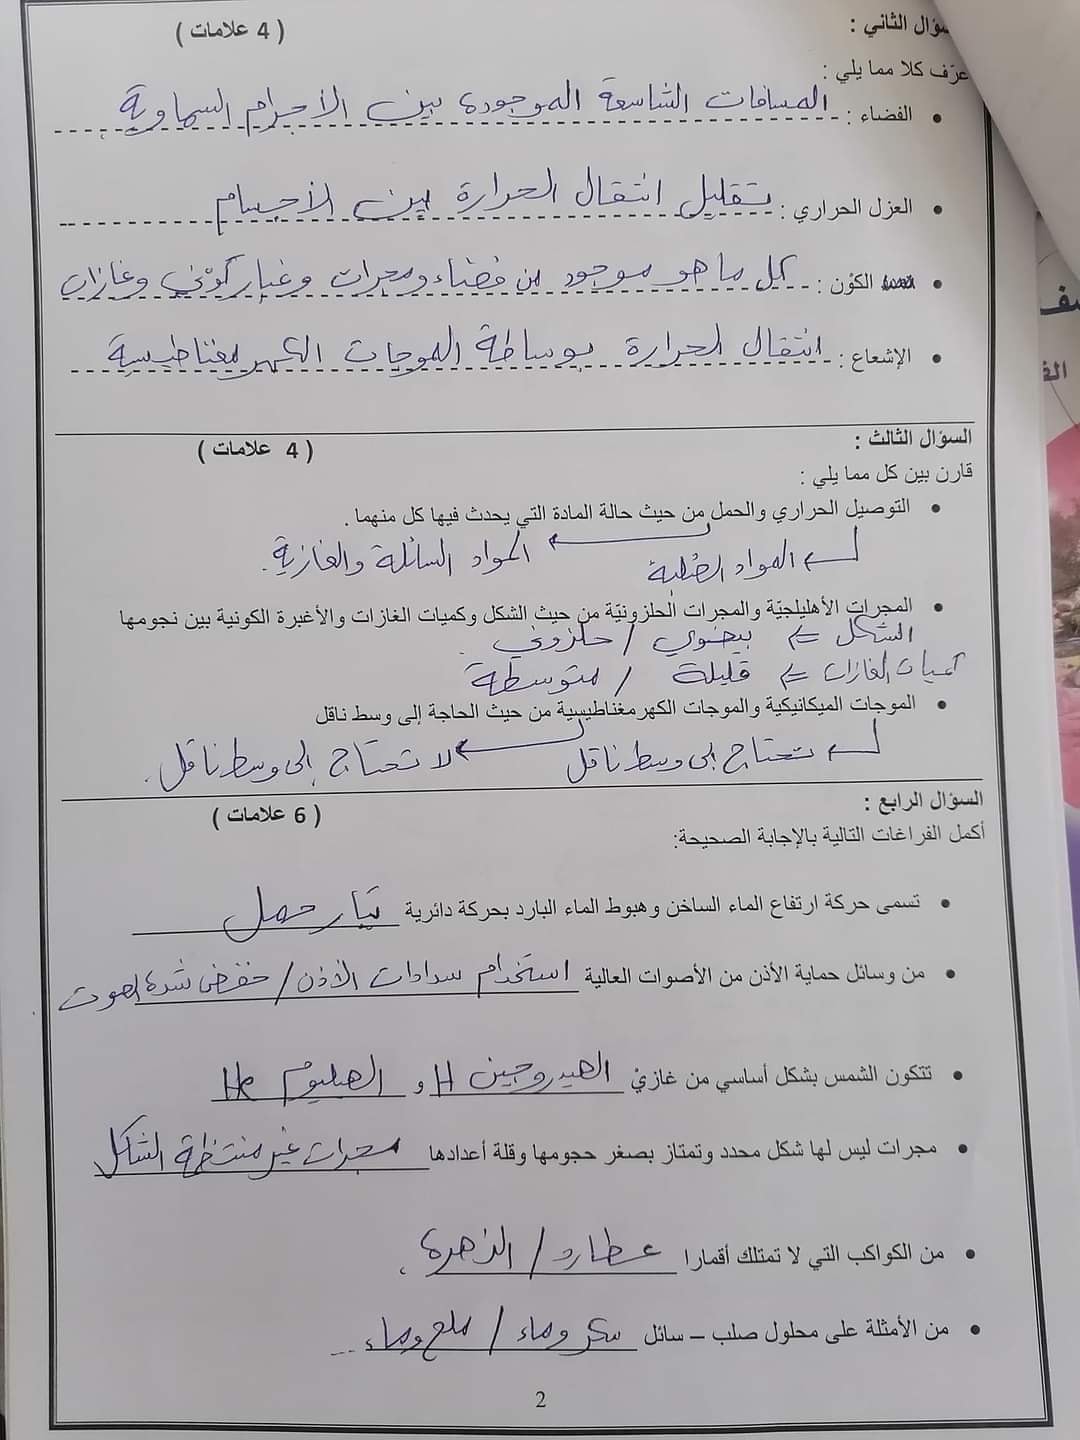 سؤال الثاني : ( 4 علامات )
عرّف كلا مما يلي :
• الفضاء : المسافات الشاسعة الموجودة بين الأجرام السماوية
• العزل الحراري : تقليل انتقال الحرارة بين الأجسام
• الكَوْن : كل ما هو موجود من فضاء ومجرات وغبار كَوْني وغازات
• الإشعاع : انتقال الحرارة بوساطة الموجات الكهرمغناطيسية
السؤال الثالث : ( 4 علامات )
قارن بين كل مما يلي :
• التوصيل الحراري والحمل من حيث حالة المادة التي يحدث فيها كل منهما .
المواد الصلبة المواد السائلة والغازية .
• المجرات الأهليلجيّة والمجرات الحلزونيّة من حيث الشكل وكميات الغازات والأغبرة الكونية بين نجومها
الشكل ⇐ بيضوي / حلزوني .
كميات الغازات ⇐ قليلة / متوسطة
• الموجات الميكانيكية والموجات الكهرمغناطيسية من حيث الحاجة إلى وسط ناقل
تحتاج إلى وسط ناقل لا تحتاج إلى وسط ناقل .
السؤال الرابع : ( 6 علامات )
أكمل الفراغات التالية بالإجابة الصحيحة:
• تسمى حركة ارتفاع الماء الساخن وهبوط الماء البارد بحركة دائرية تيّار حمل
• من وسائل حماية الأذن من الأصوات العالية استخدام سدادات الأذن / خفض شدة الصوت
• تتكون الشمس بشكل أساسي من غازيْ الهيدروجين H و الهيليوم He
• مجرات ليس لها شكل محدد وتمتاز بصغر حجومها وقلة أعدادها مجرات غير منتظمة الشكل
• من الكواكب التي لا تمتلك أقمارا عطارد / الزهرة .
• من الأمثلة على محلول صلب – سائل سكر وماء / ملح وماء ...
2